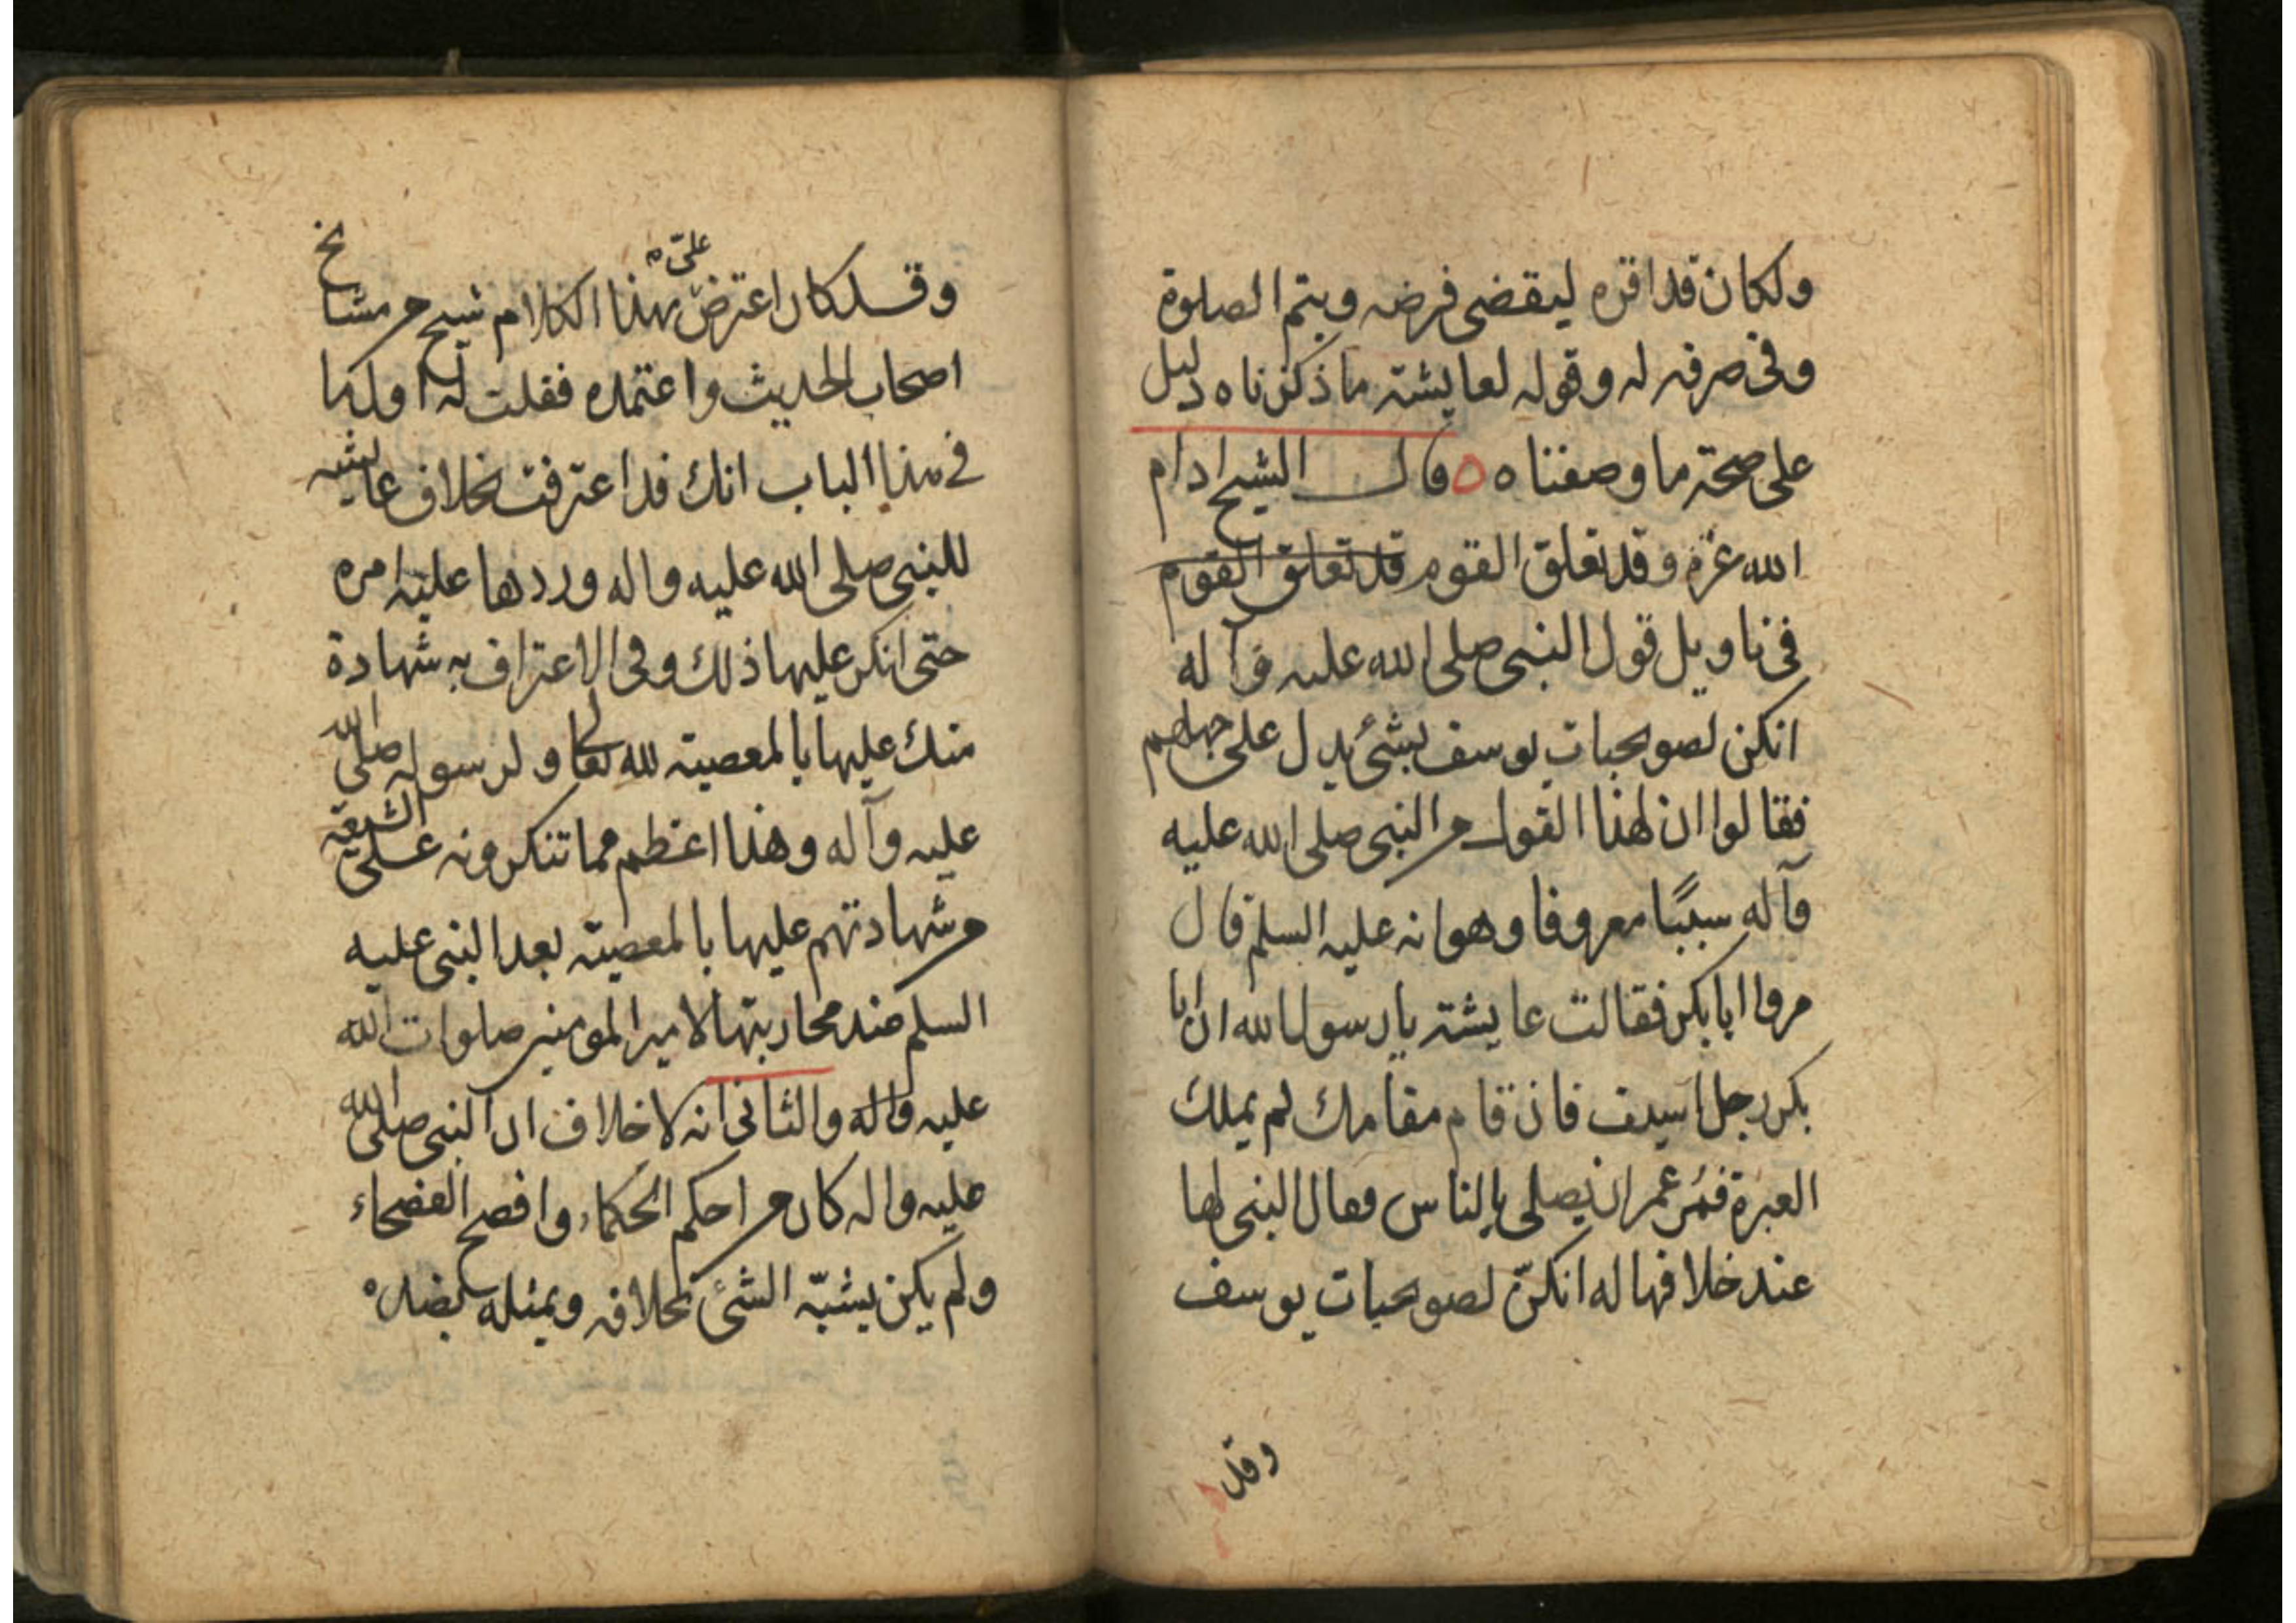 ولكان قد اقره ليقضى فرضه ويتم الصلوة
وفى صرفه له وقوله لعايشة ما ذكرناه دليل
على صحة ما وصفناه ٥ قال الشيخ ادام
الله عزه وقد تعلق القوم قد تعلق القوم
فى تاويل قول النبى صلى الله عليه وآله
انكن لصويحبات يوسف بشئ يدل على جهلهم
فقالوا ان لهذا القول من النبى صلى الله عليه
وآله سببًا معروفا وهو انه عليه السلم قال
مروا ابا بكر فقالت عايشة يا رسول الله ان ابا
بكر رجل اسيف فان قام مقامك لم يملك
العبرة فمُر عمر ان يصلى بالناس فقال النبى لها
عند خلافها له انكنّ لصويحبات يوسف
وقد
وقد كان اعترض علىّ بهذا الكلام شيخ من مشايخ
اصحاب الحديث واعتمده فقلت له اول ما
فى هذا الباب انك قد اعترفت بخلاف عايشه
للنبى صلى الله عليه واله وردها عليه امره
حتى انكر عليها ذلك وفى الاعتراف به شهادة
منك عليها بالمعصية لله تعالى ولرسوله صلى الله
عليه وآله وهذا اعظم مما تنكرونه على الشيعة
من شهادتهم عليها بالمعصية بعد النبى عليه
السلم عند محاربتها لامير المومنين صلوات الله
عليه واله والثانى انه لا خلاف ان النبى صلى الله
عليه واله كان من احكم الحكماء وافصح الفصحاء
ولم يكن يشبّه الشئ بخلافه ويمثله بضده